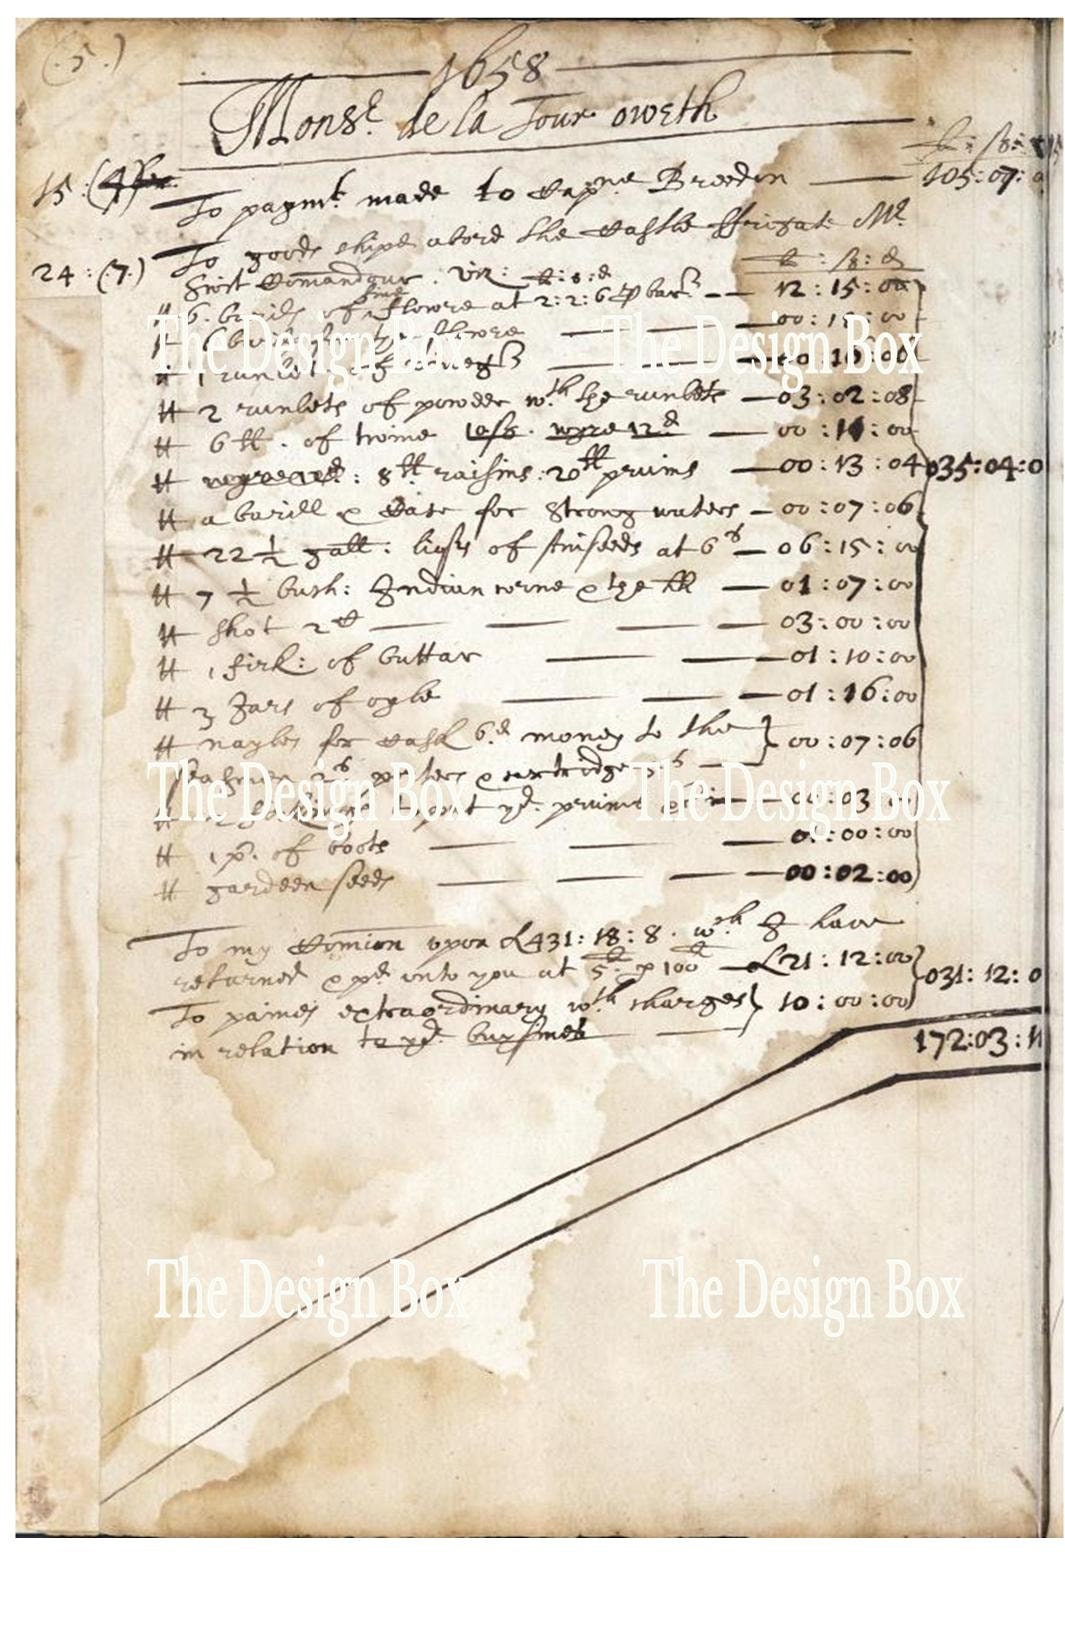 (5.)
1658
Monsr. de la Tour oweth
£ : s :
15 : (4)
To paymt. made to Capne Breedon 105:07:0
24 : (7)
To goods shipd abord the Castle ffrigate Mr.
Comandour. viz: £:s:d £ : s : d
6 of fine flowre at 2:2:6 p bar 12:15:00
00
1 runlet of 00:10:00
2 runlets of powder wth the runlets 03:02:08
6 tt. of twine 00:1 :00
8tt raisins: 20tt pruins 00:13:04 035:04:0
a barill & Case for strong waters 00:07:06
22 ½ gall: of at 6s 06:15:00
7 ½ bush: Indian corne & the 01:07:00
shot 2 03:00:00
1 firk: of buttar 01:10:00
3 Jars of oyle 01:16:00
nayles for Cask 6.d money to the } 00:07:06
2s & cartridge
put ye. pruins 00:03:00
1 pr. of boots :00:00
gardeen seeds 00:02:00
To my Comion upon £431:18:8. wch I have
returned & pd. unto you at 5£ p 100£ £21:12:00 031:12:0
To paines extraordinary wth charges } 10:00:00
in relation to ye. buysines
172:03:11
The Design Box The Design Box
The Design Box The Design Box
The Design Box The Design Box